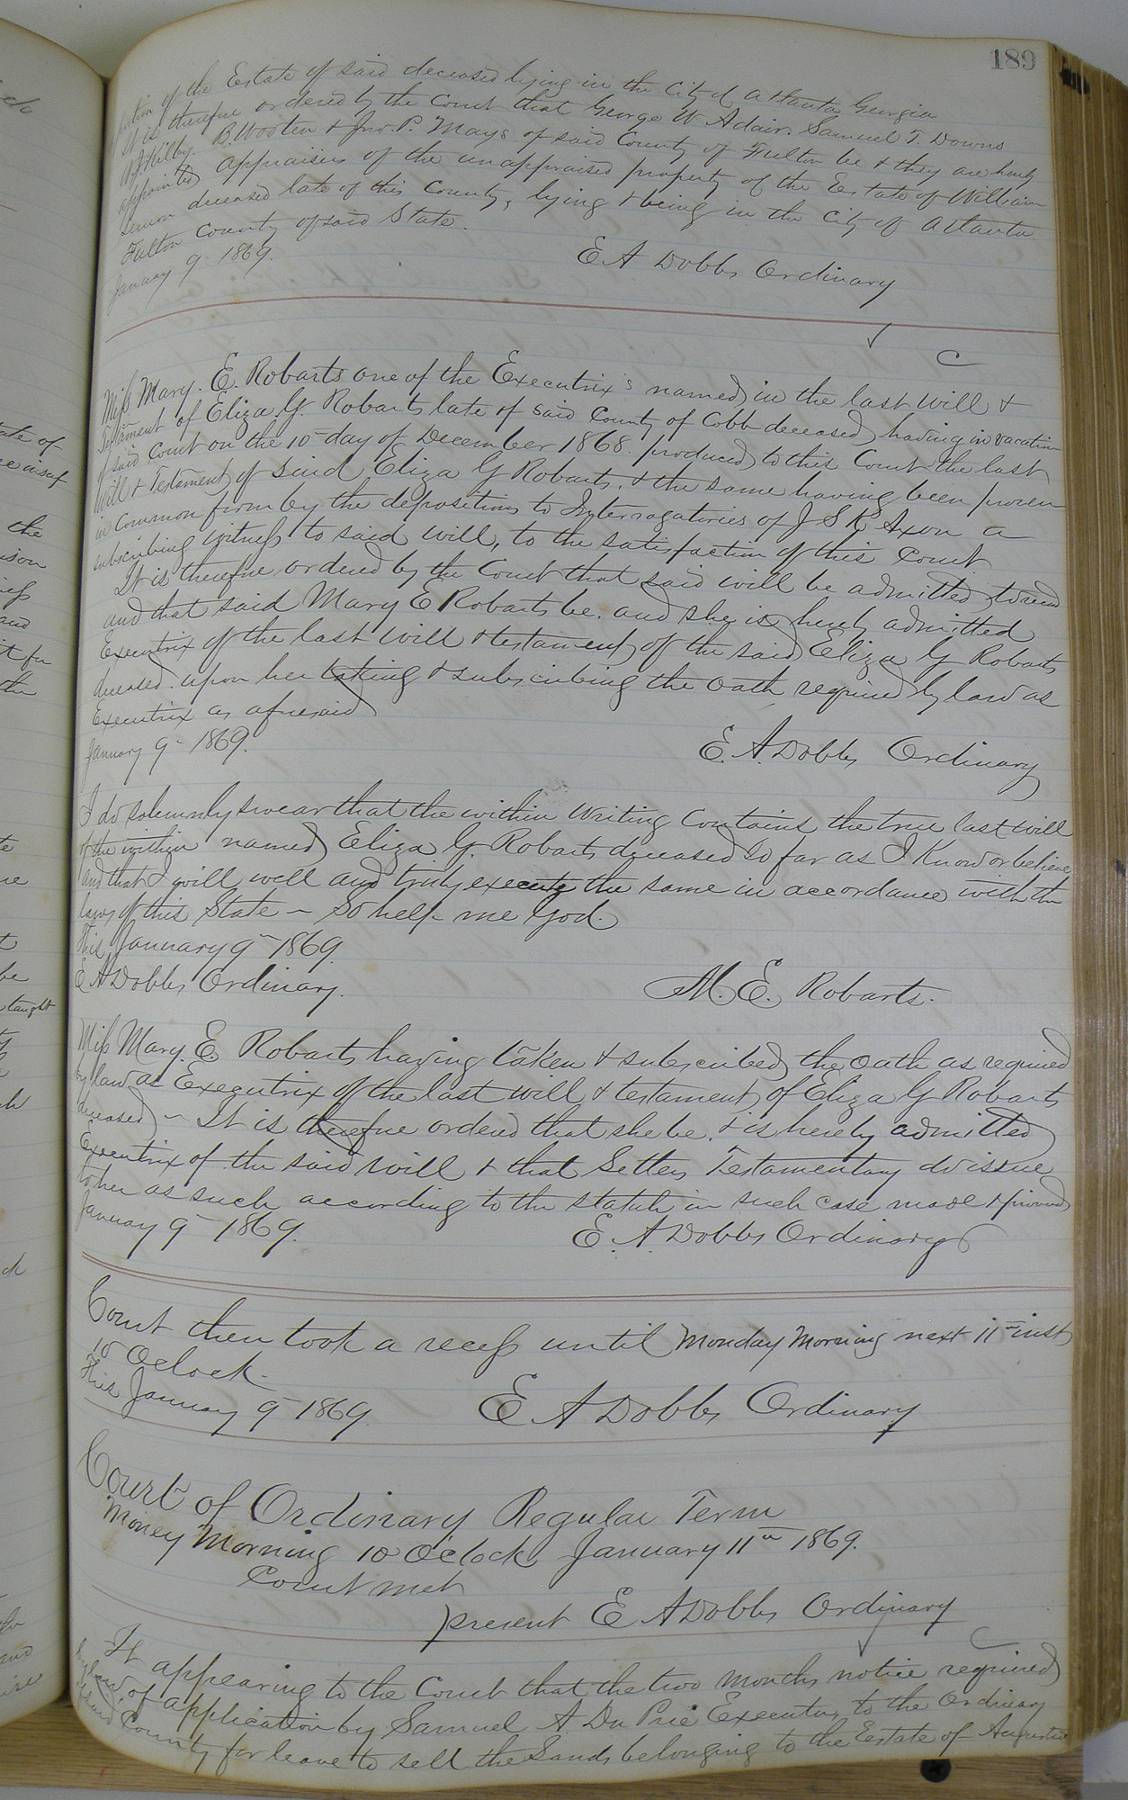 189
portion of the Estate of said deceased lying in the City of Atlanta Georgia
It is therefore ordered by the Court that George W Adair Samuel T. Downs
B. Wooten & Jno. P. Mays of said County of Fulton be & they are hereby
appointed appraisers of the unappraised property of the Estate of William
deceased late of this County, lying & being in the City of Atlanta
Fulton County of said State.
January 9 1869.
E A Dobbs Ordinary
C
Miss Mary. E. Robarts one of the Executrix's named in the last Will &
Testament of Eliza G. Robarts late of said County of Cobb deceased, having in vacation
of said Court on the 10 day of December 1868 produced to this Court the last
Will & Testament of said Eliza G Robarts, & the same having been proven
in common from by the depositions to Interrogatories of J S K Axon a
subscribing witness to said will, to the satisfaction of this Court
It is therefore ordered by the Court that said will be admitted to record
and that said Mary E Robarts be. and she is hereby admitted
Executrix of the last will & testament of the said Eliza G Robarts
deceased. upon her taking & subscribing the oath required by law as
Executrix as aforesaid
January 9 1869.
E. A. Dobbs Ordinary
I do solemnly swear that the within Writing Contains the true last will
of the within named Eliza G. Robarts deceased so far as I Know or believe
and that I will well and truly execute the same in accordance with the
laws of this State – So help me God.
This January 9th 1869.
E A Dobbs Ordinary.
M. E. Robarts.
Miss Mary. E. Robarts having taken & subscribed the oath as required
by law as Executrix of the last will & testament of Eliza G Robarts
deceased – It is therefore ordered that she be. & is hereby admitted
Executrix of the said will & that Letters Testamentary do issue
to her as such according to the statute in such case made & provided
January 9 1869.
E. A. Dobbs Ordinary
Court then took a recess until Monday Morning next 11 inst
10 Oclock.
this January 9 1869
E A Dobbs Ordinary
Court of Ordinary Regular Term
Money Morning 10 Oclock January 11th 1869.
Court met
present E A Dobbs Ordinary
It appearing to the Court that the two months notice required
by law of application by Samuel A. Du Prie Executor to the Ordinary
of said County for leave to sell the Lands belonging to the Estate of